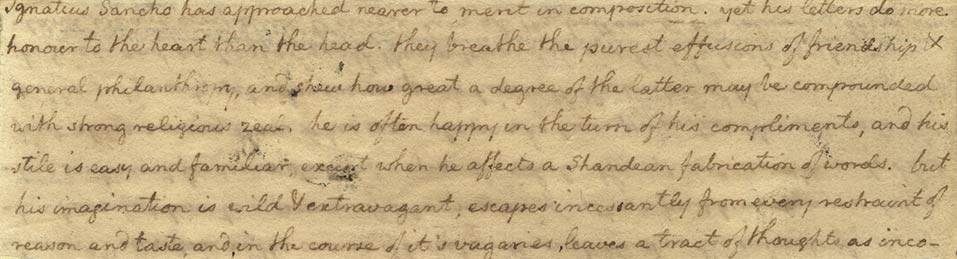 Ignatius Sancho has approached nearer to merit in composition. yet his letters do more
honour to the heart than the head. they breathe the purest effusions of friendship &
general philanthropy, and shew how great a degree of the latter may be compounded
with strong religious zeal. he is often happy in the turn of his compliments, and his
stile is easy and familiar, except when he affects a Shandean fabrication of words. but
his imagination is wild & extravagant, escapes incessantly from every restraint of
reason and taste, and, in the course of it's vagaries, leaves a tract of thought as inco-